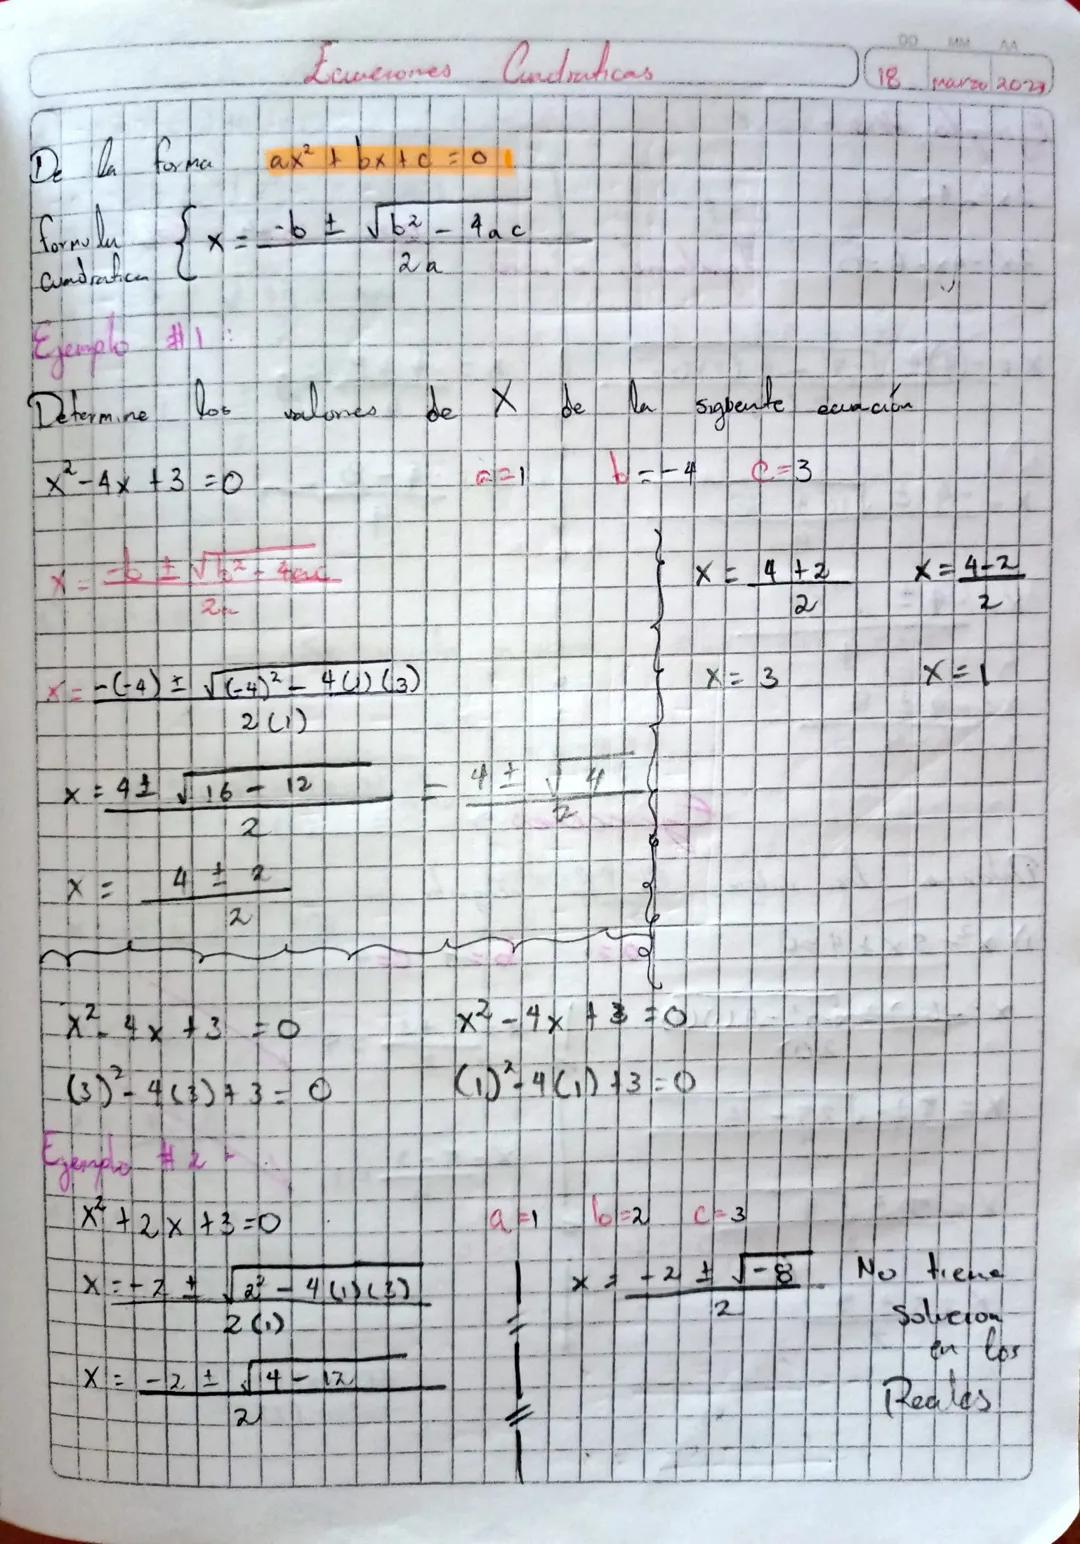 Ecuaciones Cuadraticas
DD MM AA
18 marzo 2023
De la forma ax² + bx + c = 0
formula cuadratica { x = -b ± √b² - 4ac / 2a
Ejemplo #1:
Determine los valores de X de la siguiente ecuación
x² - 4x + 3 = 0 a = 1 b = -4 c = 3
x = -b ± √b² - 4ac / 2a
x = -(-4) ± √(-4)² - 4(1)(3) / 2(1)
x = 4 ± √16 - 12 / 2 = 4 ± √4 / 2
x = 4 ± 2 / 2
x = 4 + 2 / 2 x = 4 - 2 / 2
x = 3 x = 1
x² - 4x + 3 = 0 x² - 4x + 3 = 0
(3)² - 4(3) + 3 = 0 (1)² - 4(1) + 3 = 0
Ejemplo #2
x² + 2x + 3 = 0 a = 1 b = 2 c = 3
x = -2 ± √2² - 4(1)(3) / 2(1)
x = -2 ± √4 - 12 / 2
x = -2 ± √-8 / 2
No tiene
Solucion
en los
Reales